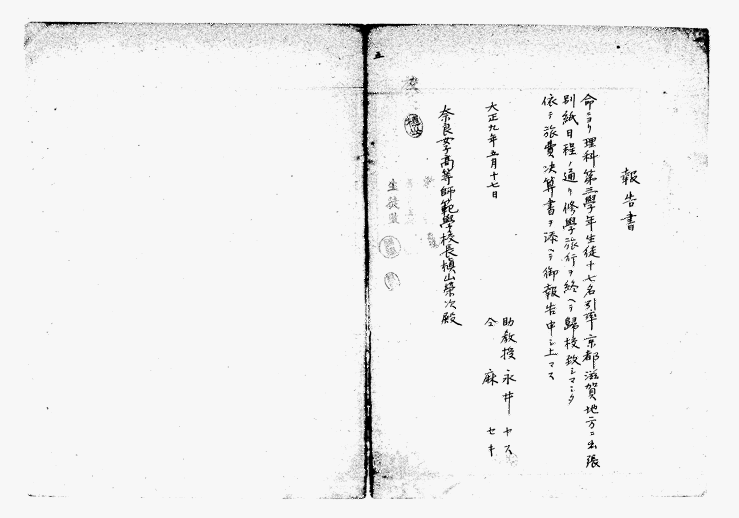 報告書
命ニヨリ理科第三學年生徒十七名引率京都滋賀地方ニ出張
別紙日程ノ通リ修學旅行ヲ終ヘテ歸校致シマシタ
依テ旅費決算書ヲ添ヘテ御報告申シ上マス
大正九年五月十七日
助教授 永井ヤス
仝 麻セキ
奈良女子高等師範學校長槇山榮次殿
生徒監